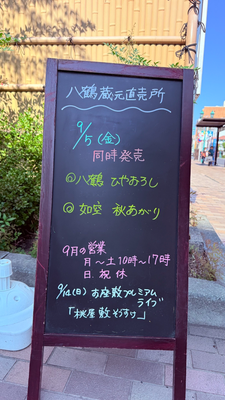 八鶴蔵元直売所
9/5(金)
同時発売
◎八鶴 ひやおろし
◎如空 秋あがり
9月の営業
月〜土10時〜17時
日.祝 休
9/14(日) お座敷プレミアム
ライブ
「桃屋敷そうすけ」